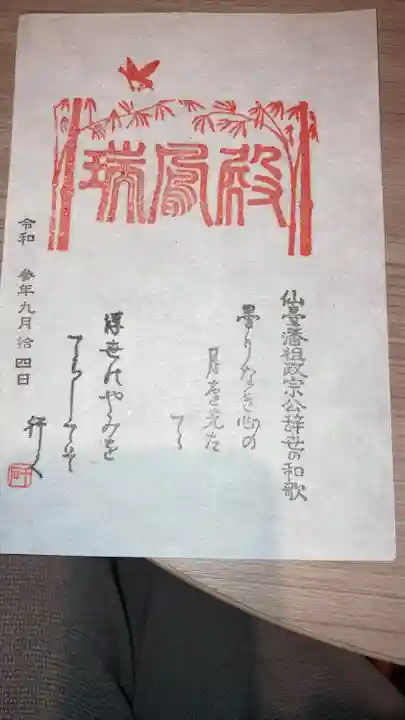 瑞鳳殿
仙臺藩祖政宗公辞世の和歌
曇りなき心の
月を先だ
てゝ
浮世のやみを
てらしてぞ
行く
令和 参年九月拾四日